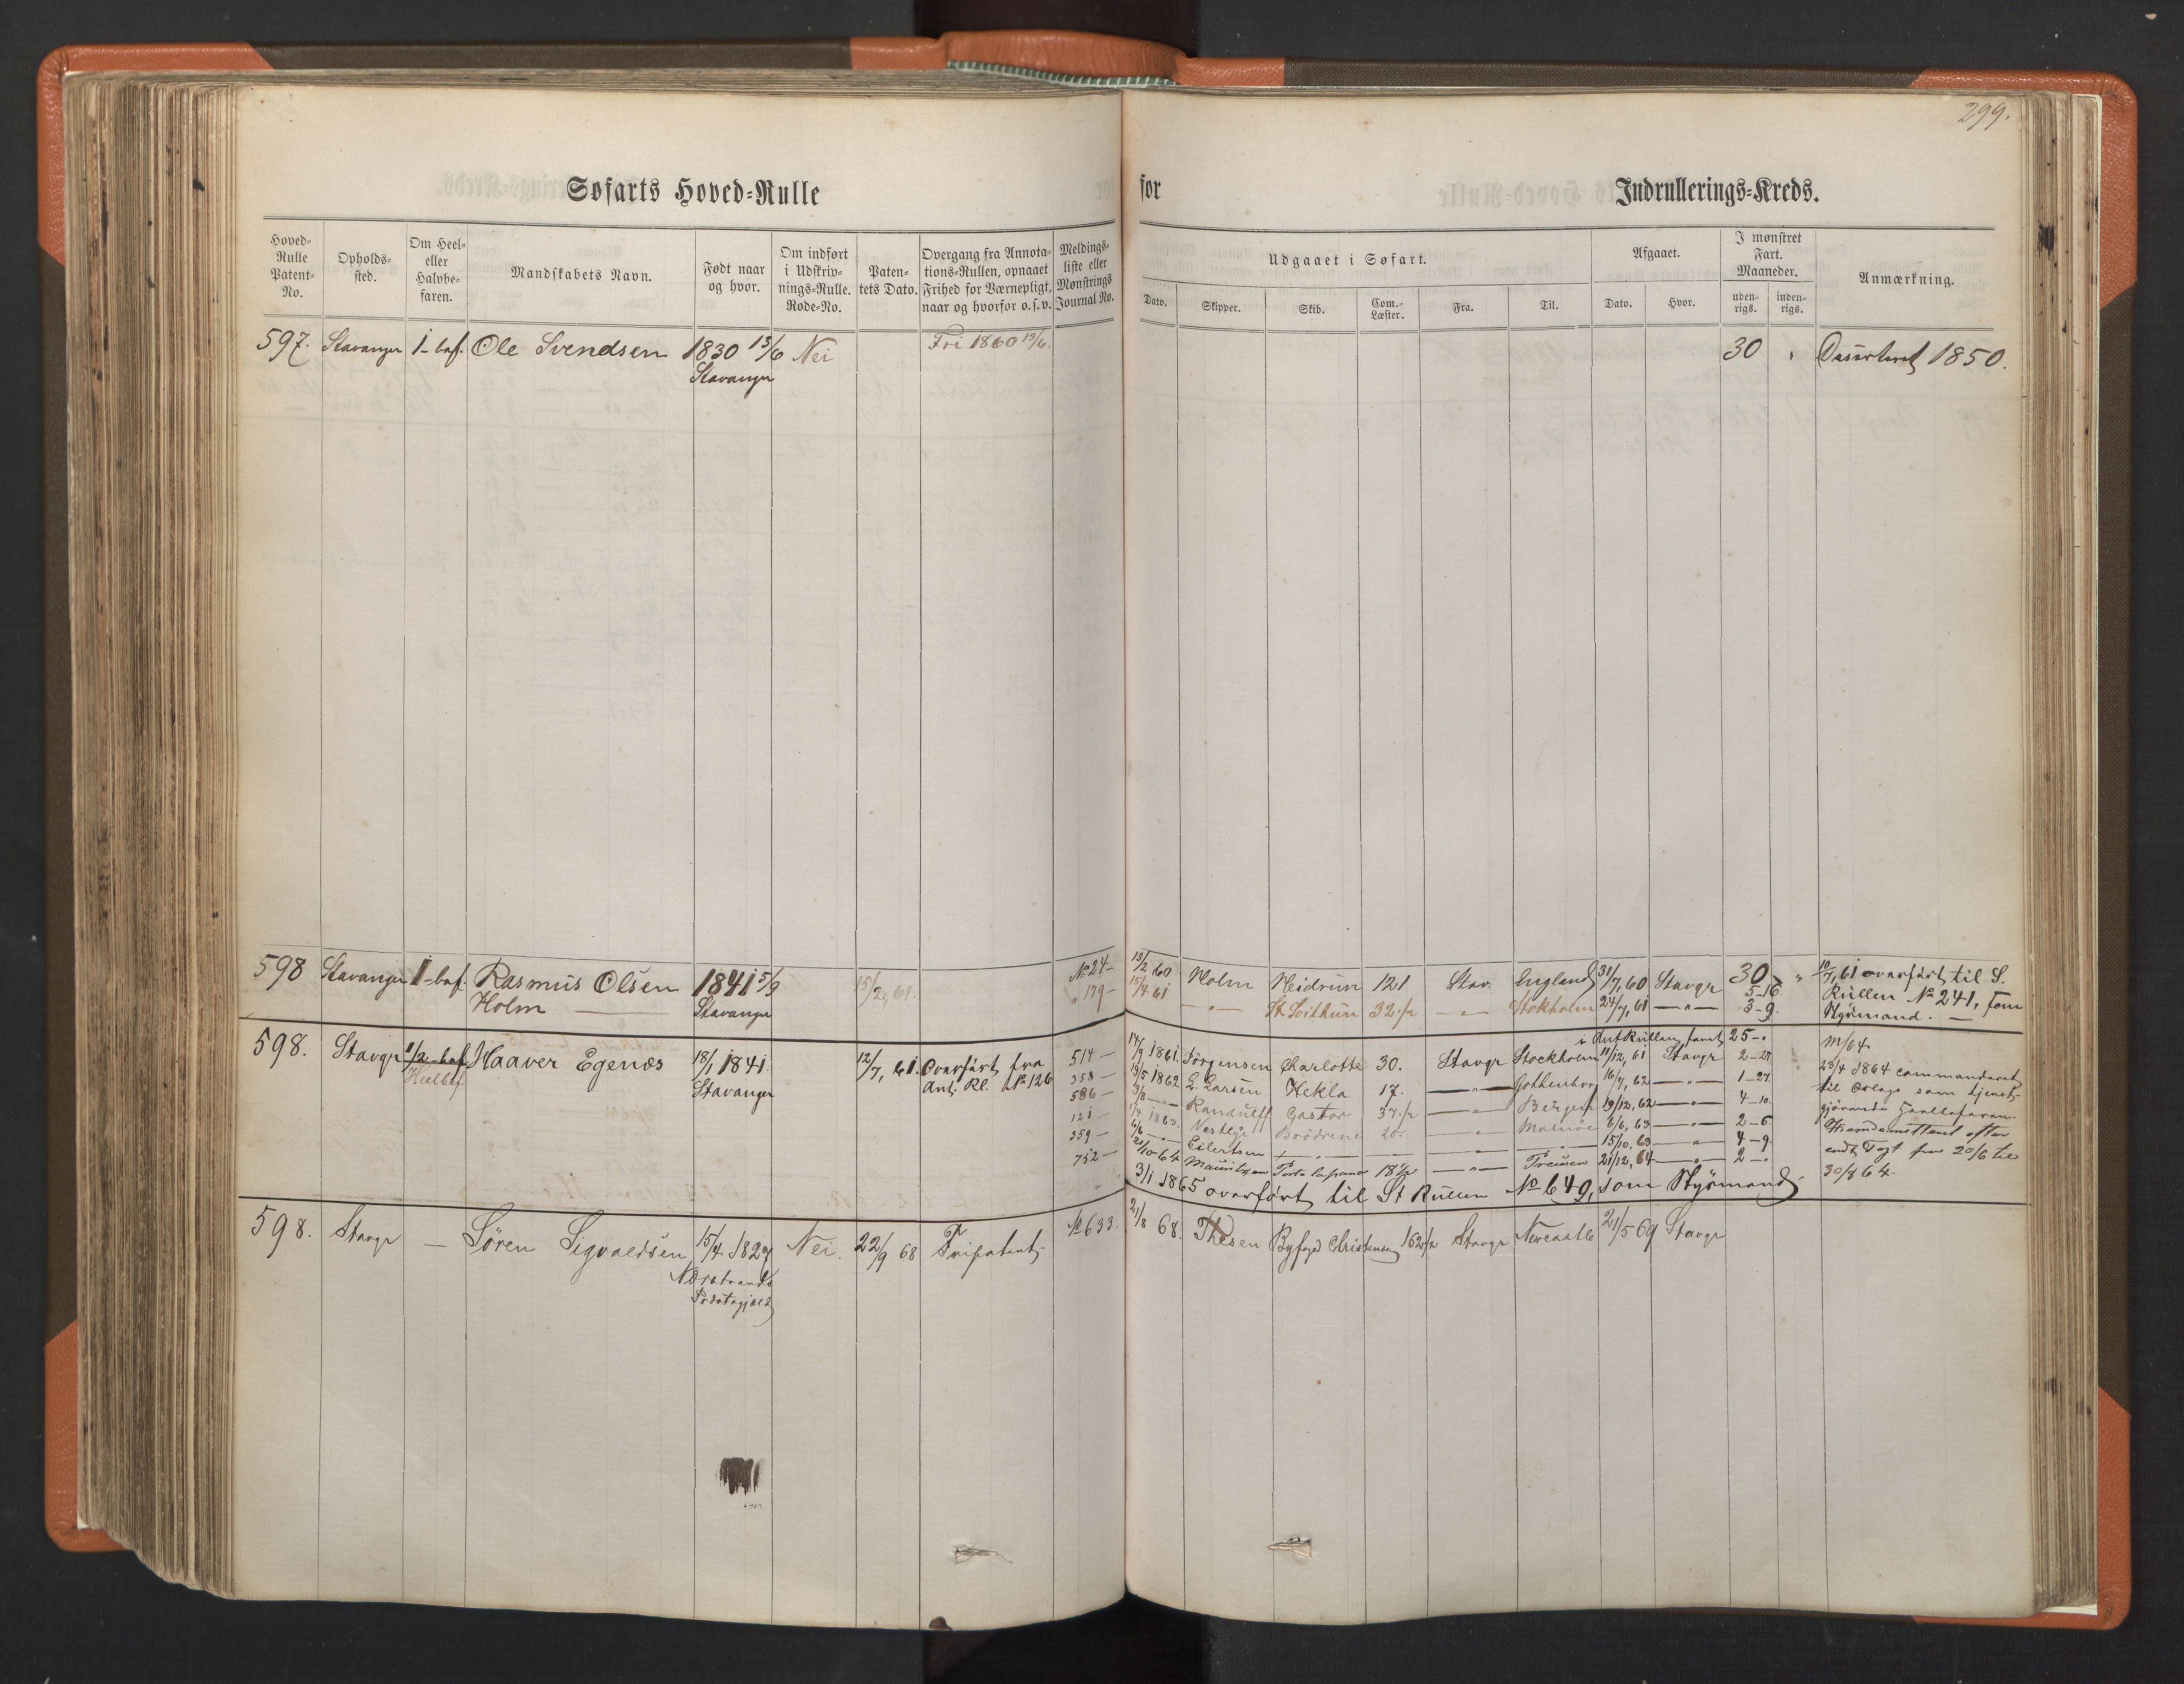 299.
Søfarts Hoved=Rulle
for
Indrullerings=Kreds.
Hoved=Rulle Patent=No.
Opholds=sted.
Om Heel= eller Halvbe=faren.
Mandskabets Navn.
Født naar og hvor.
Om indført i Udskriv=nings=Rulle. Rode=No.
Paten=tets Dato.
Overgang fra Annota=tions=Rullen, opnaaet Frihed for Værnepligt, naar og hvorfor o.s.v.
Meldings=liste eller Mønstrings Journal No.
Udgaaet i Søfart.
Afgaaet.
I mønstret Fart. Maaneder.
Anmærkning.
Dato.
Skipper.
Skib.
Com.=Læster.
Fra.
Til.
Dato.
Hvor.
uden=rigs.
inden=rigs.
597. Stavanger 1-bef. Ole Svendsen 1830 13/6 Nei Fri 1860 13/6. 30 " Deserteret 1850.
Stavanger
598 Stavanger 1-bef. Rasmus Olsen 1841 5/9 15/2, 61. No 24- 13/2 60 Holm Heidrun 121 Stav. England 31/7, 60 Stavgr 30 " 10/7, 61 overført til S.
Holm Stavanger " 179- 15/4 61 — " — St. Svithun 32 1/2 — " — Stokholm 24/7, 61 — " — 5-16. 3-9. Rullen No 241, som
Styrmand. —
i Ant Rullen faret 25-"
598. Stavgr 1/2-bef. Haaver Egenæs 18/1 1841. 12/7, 61. Overført fra 514- 14/9 1861. Jörgensen Charlotte 30. Stavgr Stockholm 11/12, 61 Stavgr 2-27 m/64
Heelbef Stavanger Ant. Rl. No 126 358- 13/5 1862 L. Larsen Hekla 17. — " — Gothenborg 16/7, 62 — " — 1-27. 23/4 1864 commanderet
586- Randulff Castor 37 1/2 — " — Bergen 19/12, 62 — " — 4-10. til Orlogs som tjenst-
121- 1863. Brødrene 20. — " — Malmöe 6/6, 63 — " — 2-5 gjørende Heelbefaren.
359- Eilertsen — " — 15/10. 63 — " — 4-9. Hjemdemitteret efter
752- 21/10 64 Mauritzen 18 1/2 — " — 21/12, 64 — " — 2-" endt Togt fra 20/6 til
30/8 64.
3/1 1865 overført til St Rullen No 649, som Styrmand.
598. Stavgr — Sören Sigvaldsen 15/4 1827 Nei. 22/9 68 Fripatent No 633. 21/8 68. Thesen Byfoged Christensen 162 1/2 Stavgr Newcastle 21/5 69 Stavgr
Nerstrands
Præstegjeld